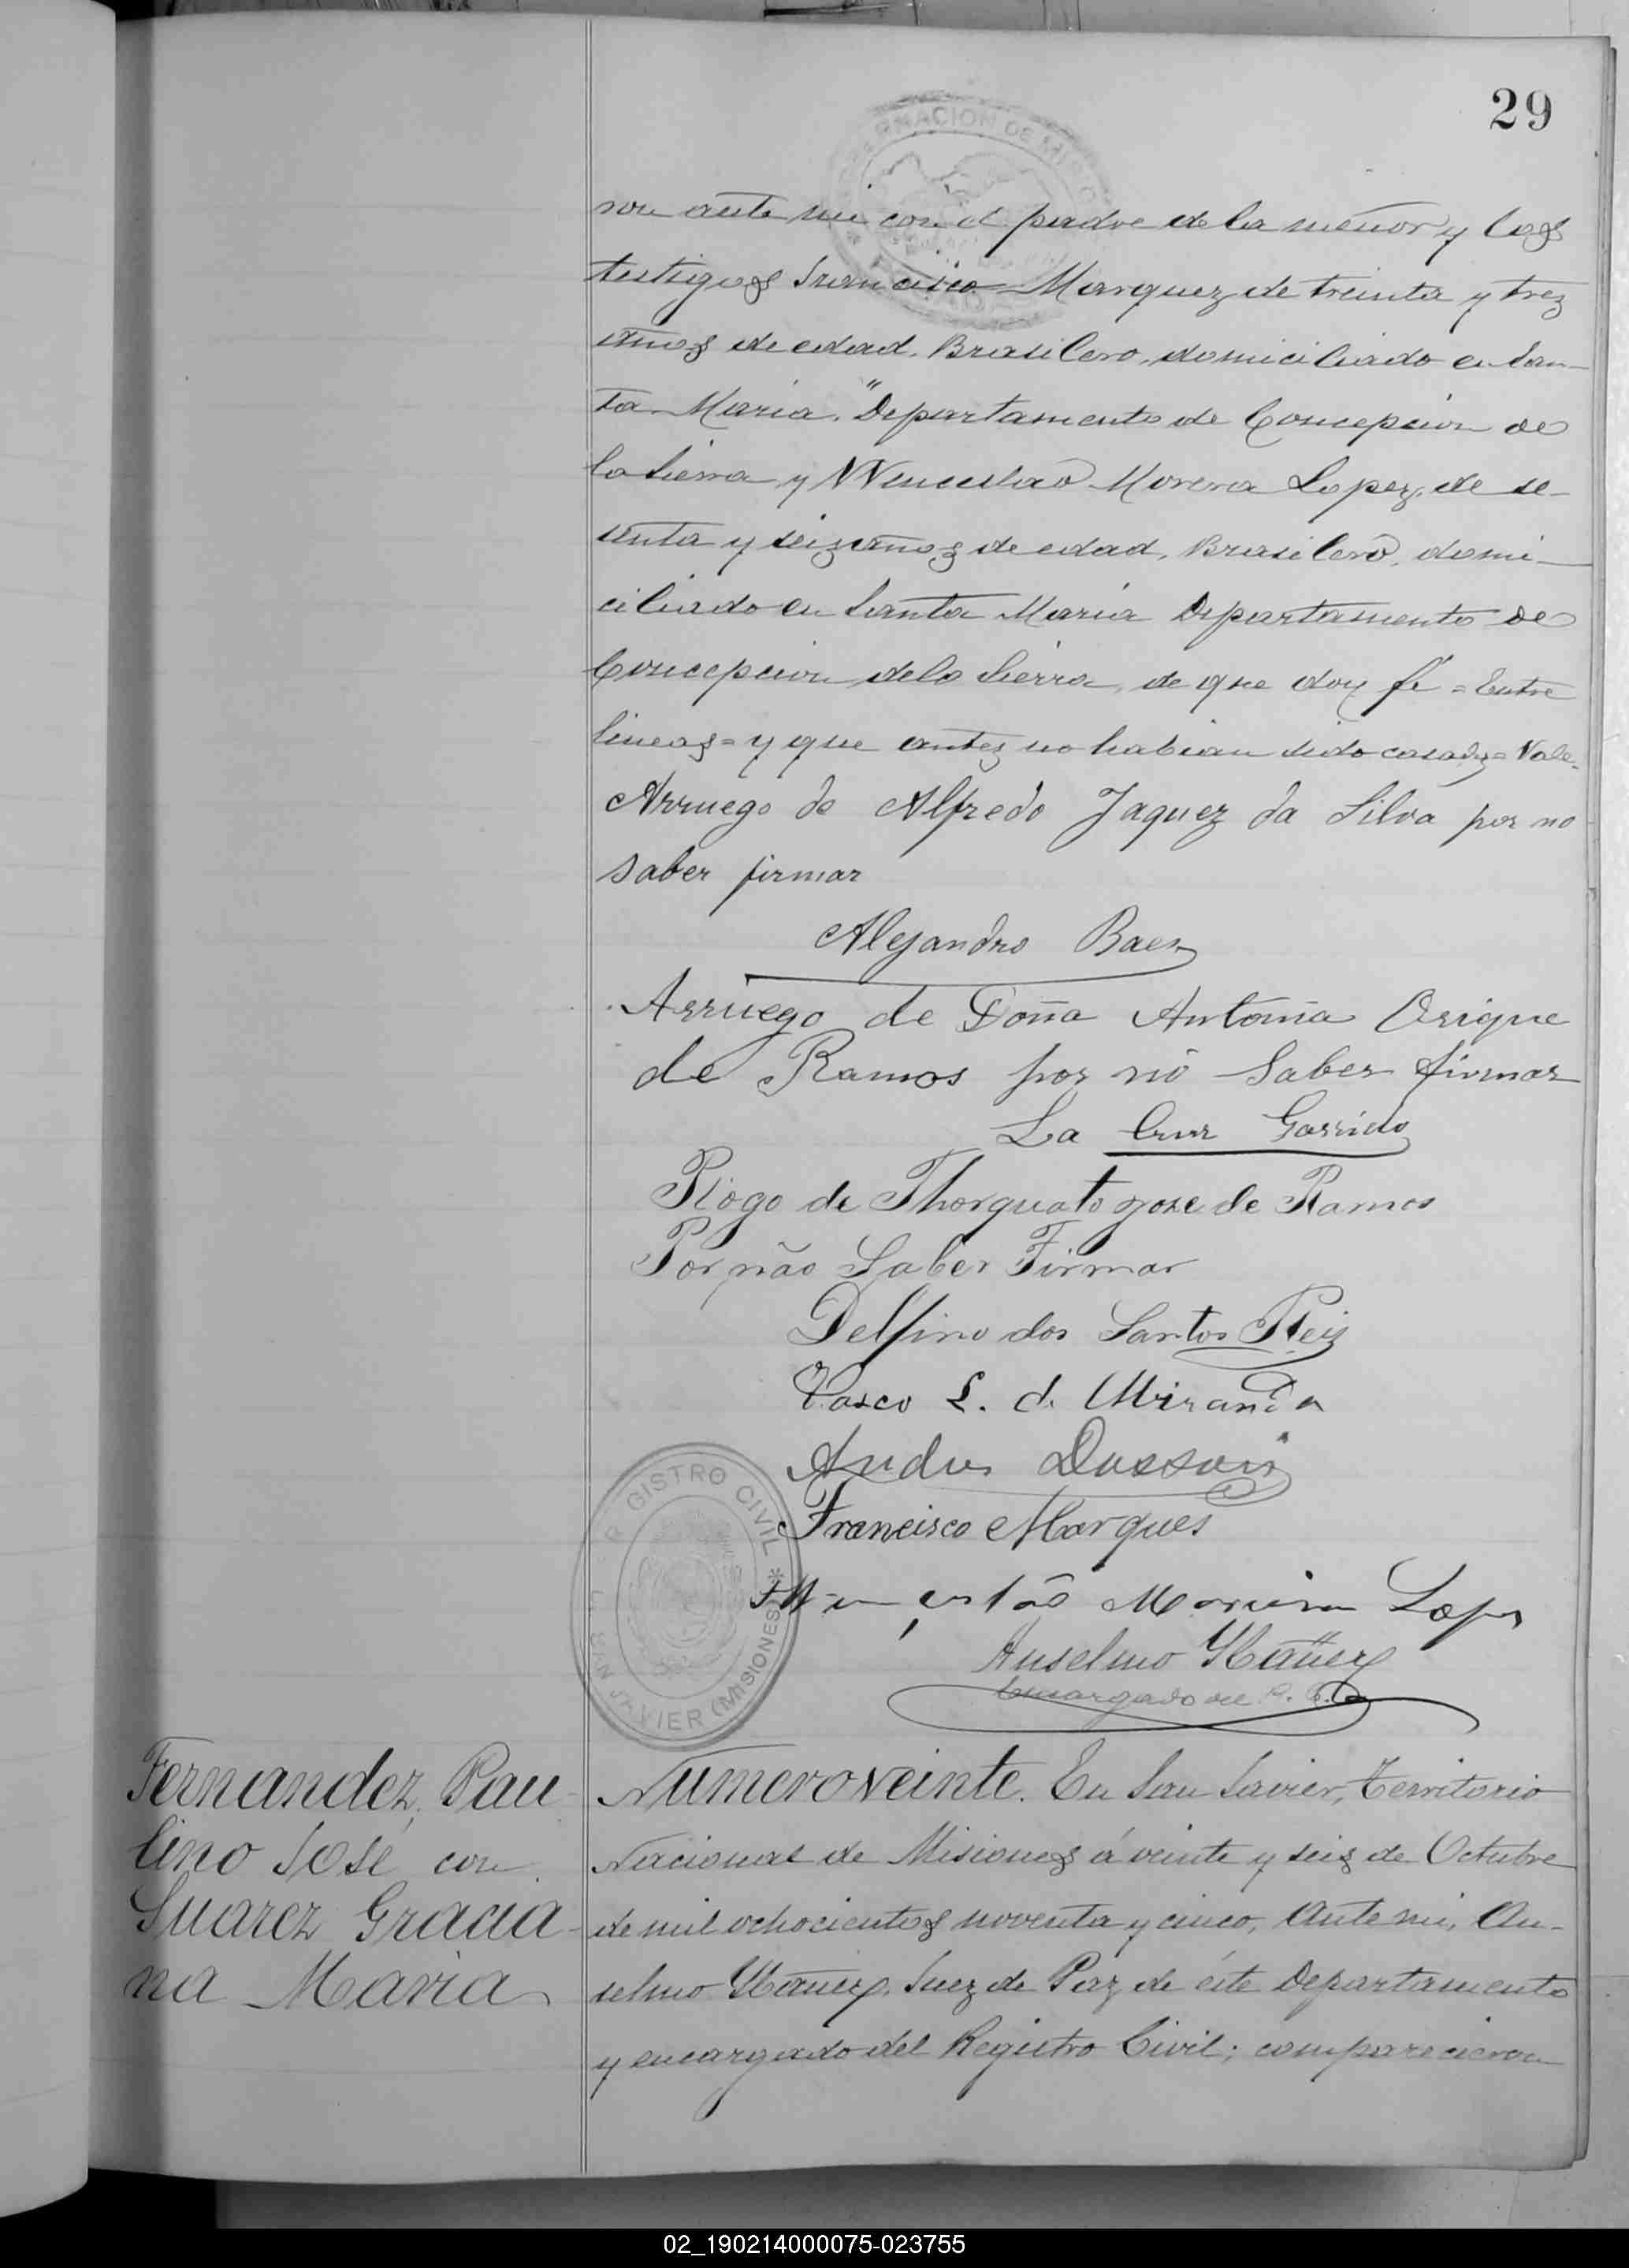 29
GOBERNACION DE MISIONES
ron ante mi con el padre de la menor y los
testigos Francisco Marquez de treinta y trez
años de edad, Brasilero, domiciliado en San-
ta Maria, "Departamento de Concepcion de
la Sierra y Wenceslao Morera Lopez, de se-
senta y seiz años de edad, Brasilero, domi-
ciliado en Santa Maria Departamento de
Concepcion de la Sierra, de que doy fé = Entre
lineas = y que antes no habian sido casados = Vale.
Arruego de Alfredo Jaquez da Silva por no
saber firmar
Alejandro Baez
Arruego de Doña Antonia Orique
de Ramos por no saber firmar
La Cruz Garrido
Rogo de Thorquato Jose de Ramos
Por não Saber Firmar
Delfino dos Santos Reis
Vasco L. de Miranda
Andres
Francisco Marques
Lopes
Anselmo Ybañez
Encargado del R. C.
REGISTRO CIVIL
SAN JAVIER (MISIONES)
Fernandez, Pau-
lino José con
Suarez Gracia-
na Maria
Numero veinte. En San Javier, Territorio
Nacional de Misiones á veinte y seis de Octubre
de mil ochocientos noventa y cinco, Ante mi, An-
selmo Ybañez, Juez de Paz de éste Departamento
y encargado del Registro Civil; comparecieron
02_190214000075-023755